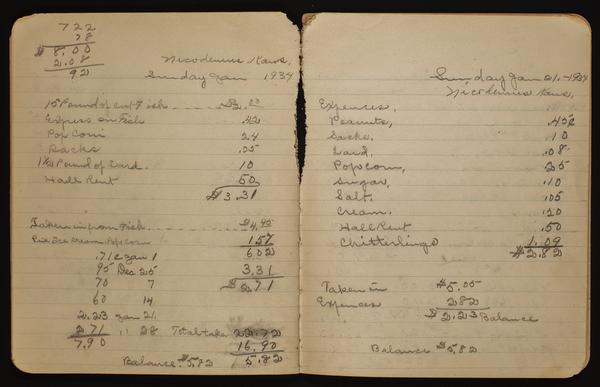 722
78
$8.00
2.08
92
Nicodemus Kans.
Sunday Jan 1934
15 Pound of cut Fish $2.
Express on Fish .42
Pop Corn 24
Sacks .05
1 Pound of Lard. 10
Hall Rent 50
$3.31
Taken in from Fish $4.45
Pie Ice Cream Popcorn 1.57
6.02
.71¢ Jan 1 3.31
95 Dec 25 $2.71
70 7
60 14
2.23 Jan 21.
2.71 " 28 Total take 22.72
7.90 16.90
Balance. $5.82 5.82
Sunday Jan 21,-1934
Nicodemus Kans.
Expences,
Peanuts, .45¢
Sacks. 10
Lard, .08
Popcorn, 25
Sugar, .10
Salt. .05
Cream. .20
Hall Rent .50
Chitterlings 1.09
$2.82
Taken in $5.05
Expences 2.82
$2.23 Balance
Balance $5.82